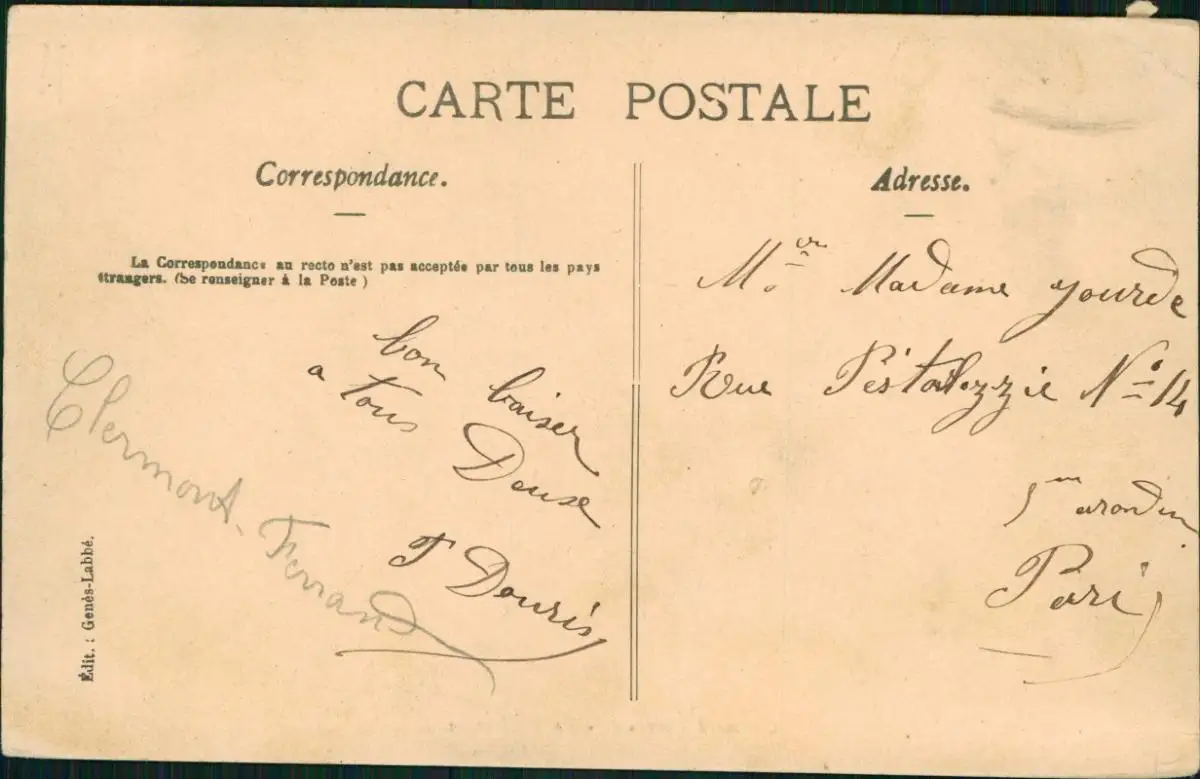 CARTE POSTALE
Correspondance.
La Correspondance au recto n'est pas acceptée par tous les pays
étrangers. (Se renseigner à la Poste)
bon baiser
a tous
Douse
F Douris
Clermont-Ferrand
Édit. : Genès-Labbé.
Adresse.
Mr Madame Yourde
Rue Péstalozzie No 14
5me arondin
Paris